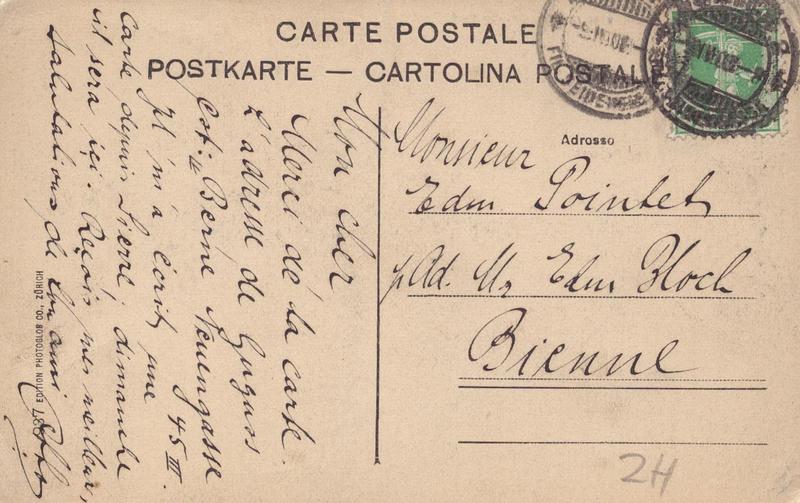 CARTE POSTALE
POSTKARTE — CARTOLINA POSTALE
Adresse
Monsieur
Edm Pointet
p. Ad. Mr Edm Bloch
Bienne
Mon cher
Merci de la carte.
L'adresse de Guguss
est: Berne Neuengasse
45 III.
Il m'a écrit une
carte depuis Sierre; dimanche
il sera içi. Reçois mes meilleur,
salutations de ton ami
EDITION PHOTOGLOB CO., ZÜRICH
2H